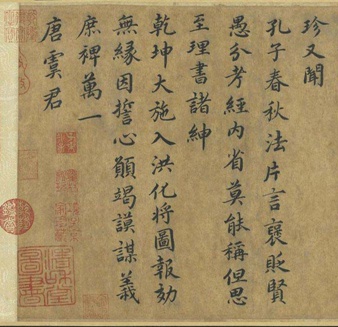 珍又聞
孔子春秋法片言褒貶賢
愚分考經內省莫能稱但思
至理書諸紳
乾坤大施入洪化将圖報効
無緣因誓心願竭謨謀義
庶裨萬一
唐虞君